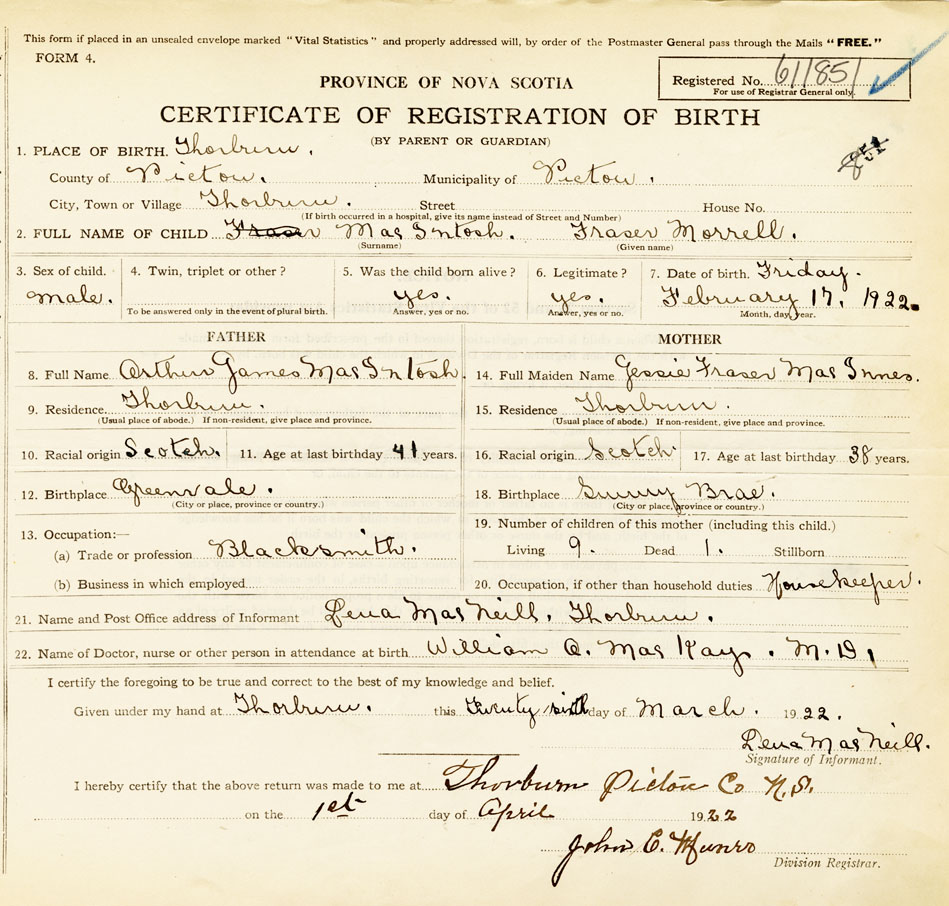 This form if placed in an unsealed envelope marked "Vital Statistics" and properly addressed will, by order of the Postmaster General pass through the Mails "FREE."
FORM 4.
PROVINCE OF NOVA SCOTIA
Registered No. 611851
For use of Registrar General only.
CERTIFICATE OF REGISTRATION OF BIRTH
(BY PARENT OR GUARDIAN)
851
1. PLACE OF BIRTH. Thorburn.
County of Pictou. Municipality of Pictou.
City, Town or Village Thorburn. Street House No.
(If birth occurred in a hospital, give its name instead of Street and Number)
2. FULL NAME OF CHILD Fraser MacIntosh. Fraser Morrell.
(Surname) (Given name)
3. Sex of child. 4. Twin, triplet or other? 5. Was the child born alive? 6. Legitimate? 7. Date of birth. Friday.
Male. yes. yes. February 17, 1922.
To be answered only in the event of plural birth. Answer, yes or no. Answer, yes or no. Month, day, year.
FATHER MOTHER
8. Full Name Arthur James MacIntosh. 14. Full Maiden Name Jessie Fraser MacInnes.
9. Residence. Thorburn. 15. Residence Thorburn.
(Usual place of abode.) If non-resident, give place and province. (Usual place of abode.) If non-resident, give place and province.
10. Racial origin Scotch. 11. Age at last birthday 41 years. 16. Racial origin Scotch 17. Age at last birthday 38 years.
12. Birthplace Greenvale. 18. Birthplace Sunny Brae.
(City or place, province or country.) (City or place, province or country.)
13. Occupation:— 19. Number of children of this mother (including this child.)
(a) Trade or profession Blacksmith. Living 9. Dead 1. Stillborn
(b) Business in which employed 20. Occupation, if other than household duties Housekeeper.
21. Name and Post Office address of Informant Lena MacNeill, Thorburn.
22. Name of Doctor, nurse or other person in attendance at birth William A. MacKay. M.D.
I certify the foregoing to be true and correct to the best of my knowledge and belief.
Given under my hand at Thorburn. this twenty sixth day of March. 1922.
Lena MacNeill.
Signature of Informant.
I hereby certify that the above return was made to me at Thorburn Pictou Co N.S.
on the 1st day of April 1922
John C. Munro
Division Registrar.